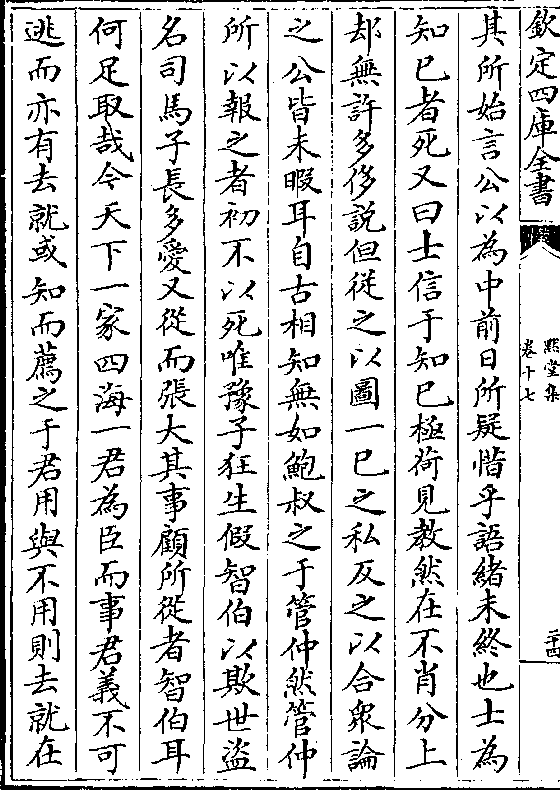 欽定四庫全書
默堂集
卷十七
二十四
其所始言公以為中前日所疑惜乎語緒未終也士為
知已者死又曰士信于知已極荷見教然在不肖分上
却無許多侈說但從之以圖一已之私反之以合衆論
之公皆未暇耳自古相知無如鮑叔之于管仲然管仲
所以報之者初不以死唯豫子狂生假智伯以欺世盜
名司馬子長多愛又從而張大其事顧所從者智伯耳
何足取哉今天下一家四海一君為臣而事君義不可
逃而亦有去就或知而薦之于君用與不用則去就在